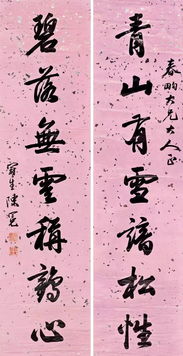 春畇大兄大人正
青山有雪諳松性
碧落無雲稱鶴心
陳冕